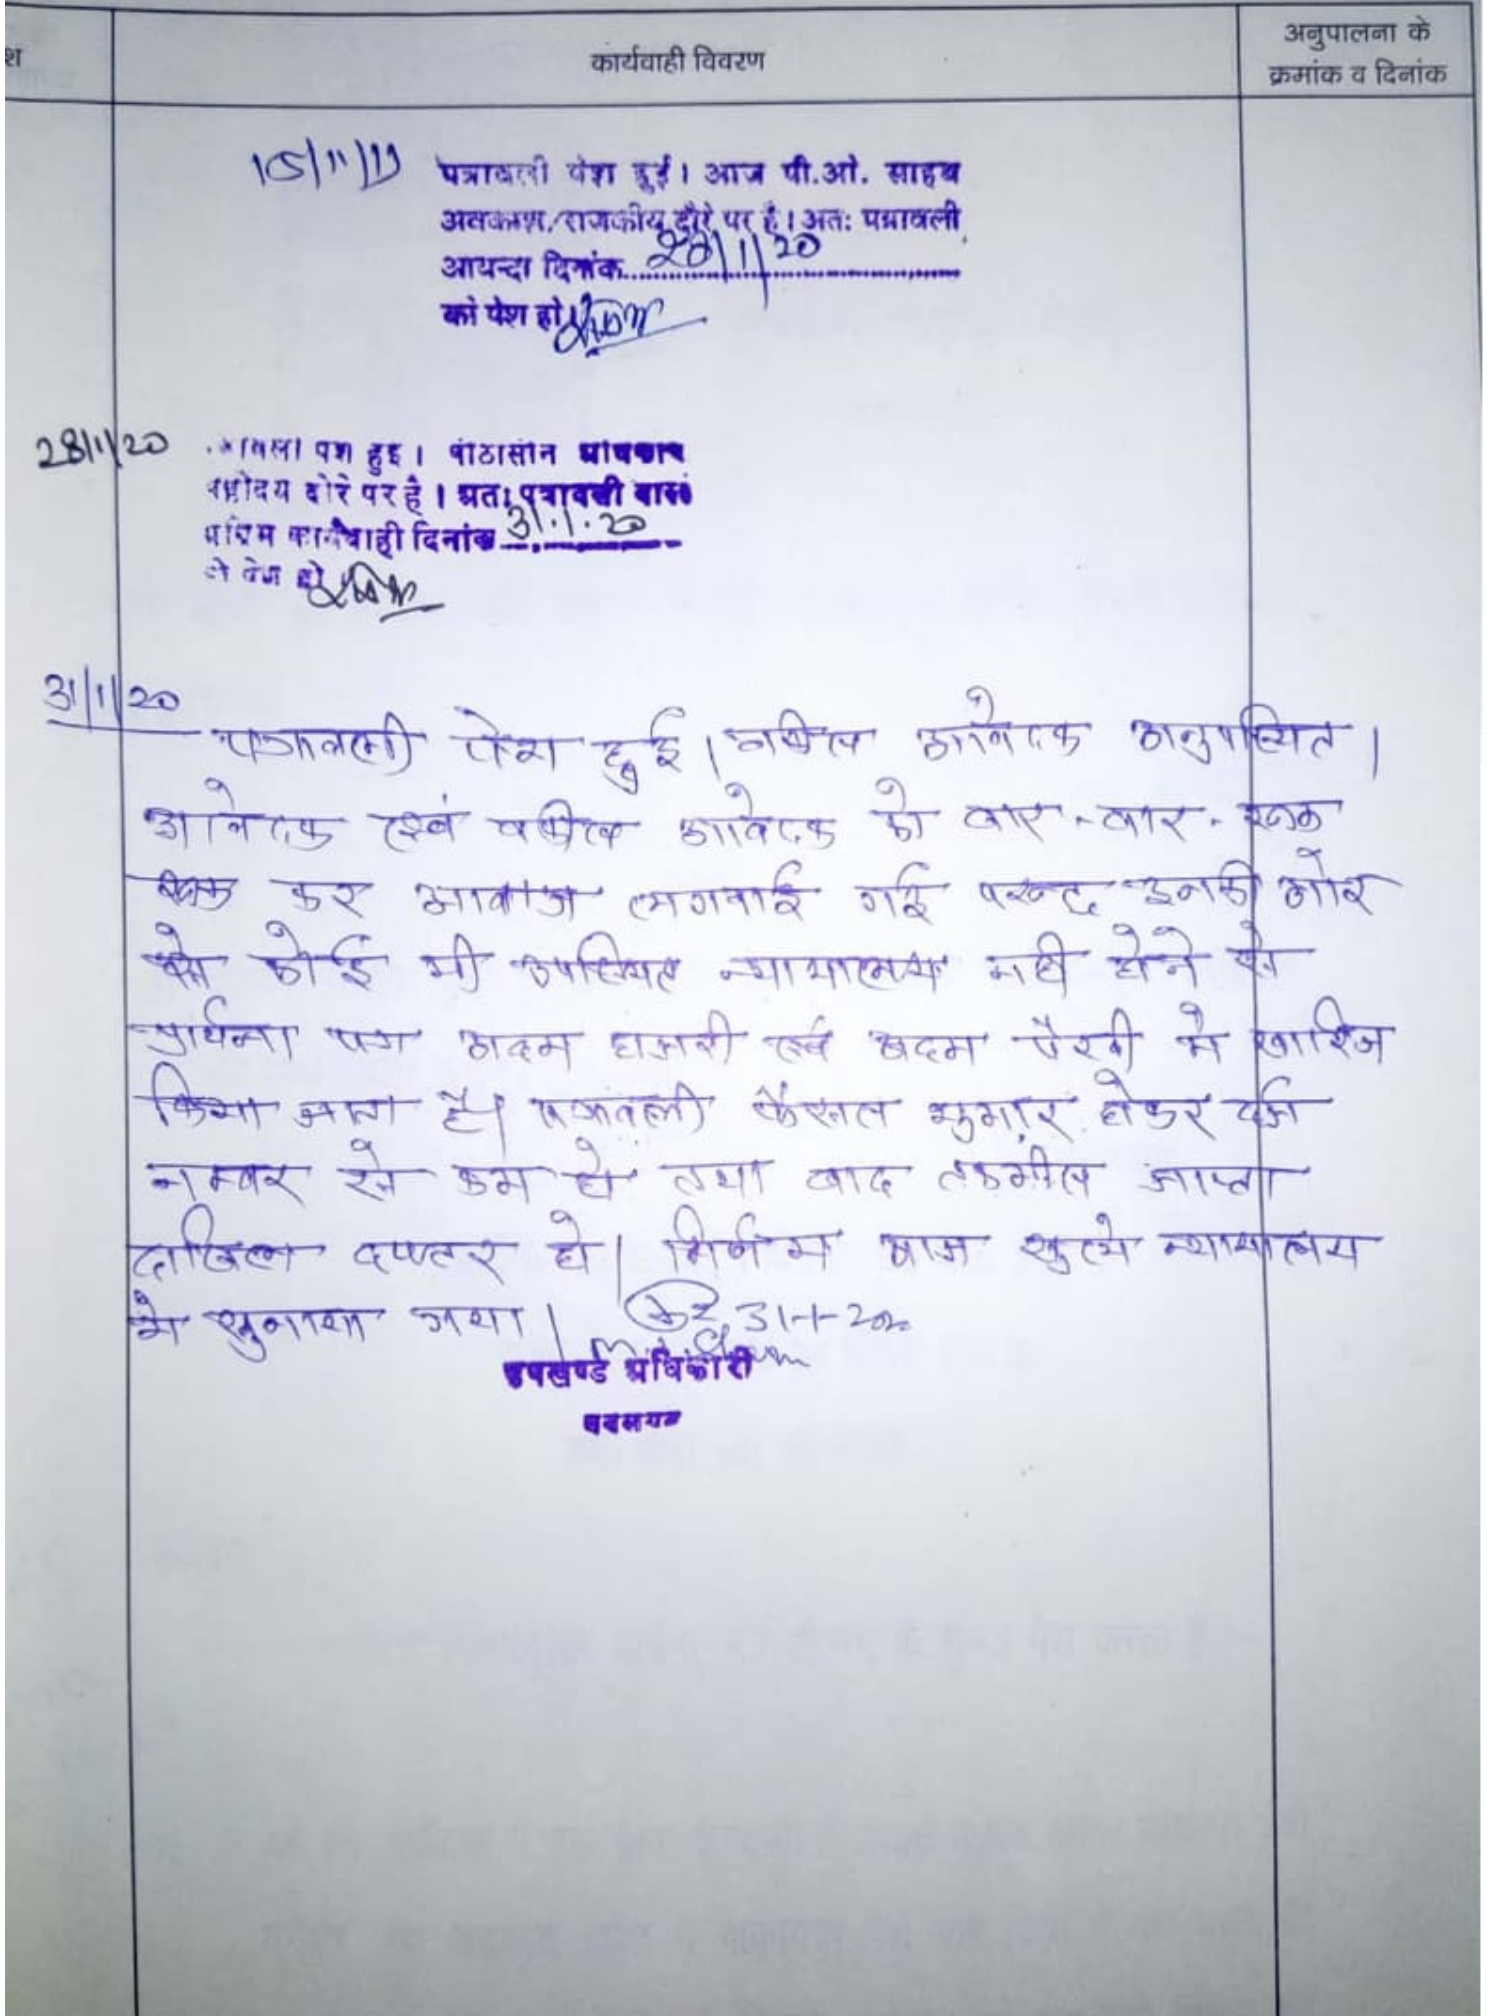 श
कार्यवाही विवरण
अनुपालना के
क्रमांक व दिनांक
15/11/19
पत्रावली पेश हुई। आज पी.ओ. साहब
अवकाश/राजकीय दौरे पर है। अतः पत्रावली
आयन्दा दिनांक 28/1/20
को पेश हो।
28/1/20
पेश हुई। पीठासीन
महोदय दौरे पर है। अतः पत्रावली वास्ते
अग्रिम कार्यवाही दिनांक 31.1.20
को पेश हो
31/1/20
पत्रावली पेश हुई। वकील आवेदक अनुपस्थित।
आवेदक एवं वकील आवेदक को बार-बार रूक
कर आवाज लगवाई गई परन्तु उनकी ओर
से कोई भी उपस्थित न्यायालय नही होने से
प्रार्थना पत्र अदम हाजरी एवं अदम पैरवी मे खारिज
किया जाता है। पत्रावली फैसल शुमार होकर दर्ज
नम्बर से कम हो तथा बाद तकमील जाप्ता
दाखिल दफ्तर हो। निर्णय आज खुल्ये न्यायालय
मे सुनाया गया।
31-1-2020
उपखण्ड अधिकारी